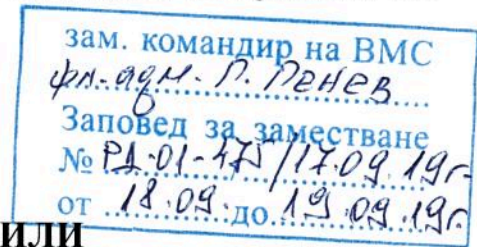 зам. командир на ВМС
фл. адм. П. Пенев
Заповед за заместване
№ РД-01-475/17.09.19г.
от 18.09. до 19.09.19г.
ИЛИ